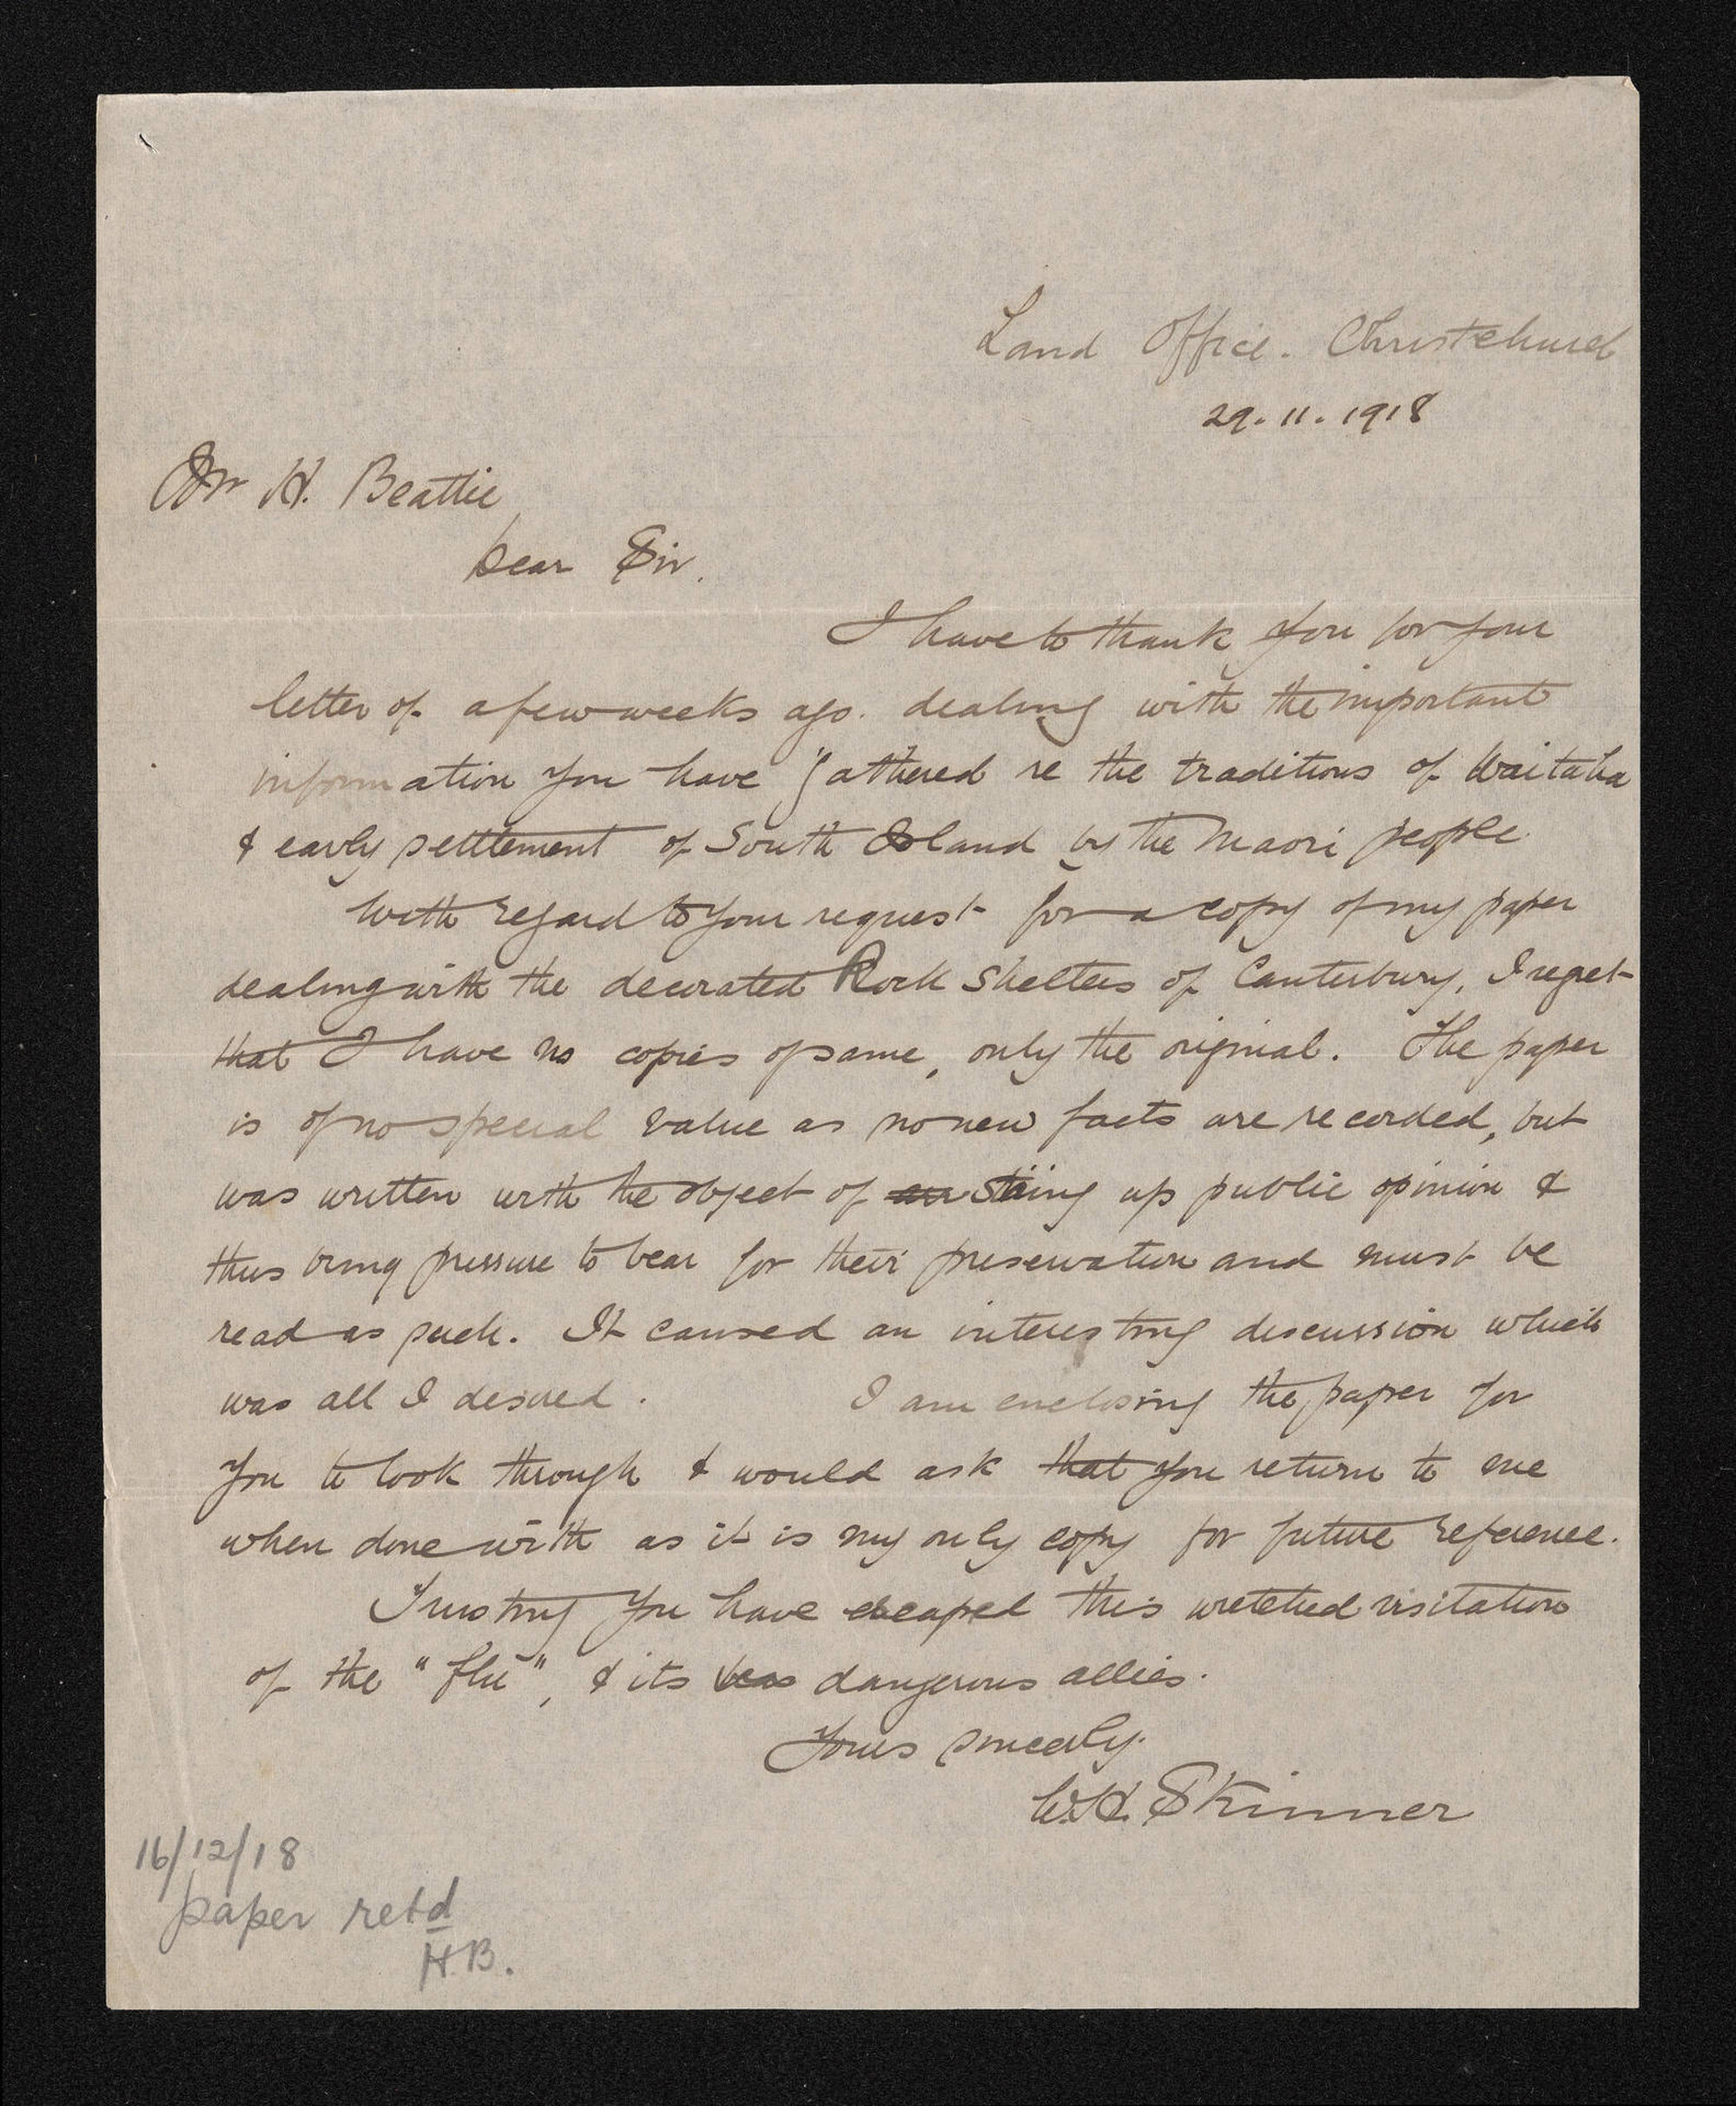 Land Office. Christchurch
29.11.1918
Mr H. Beattie
Dear Sir.
I have to thank you for your
letter of a few weeks ago. dealing with the important
information you have gathered re the traditions of Waitaha
& early settlement of South Island by the Maori people
With regard to your request for a copy of my paper
dealing with the decorated Rock Shelters of Canterbury, I regret
that I have no copies of same, only the original. The paper
is of no special value as no new facts are recorded, but
was written with the object of up public opinion &
thus bring pressure to bear for their preservation and must be
read as such. It caused an interesting discussion which
was all I desired. I am enclosing the paper for
you to look through & would ask that you return to me
when done with as it is my only copy for future reference.
Trusting you have escaped this wretched visitation
of the "flu", & its dangerous allies.
Yours sincerely.
W.H. Skinner
16/12/18
paper retd
H.B.